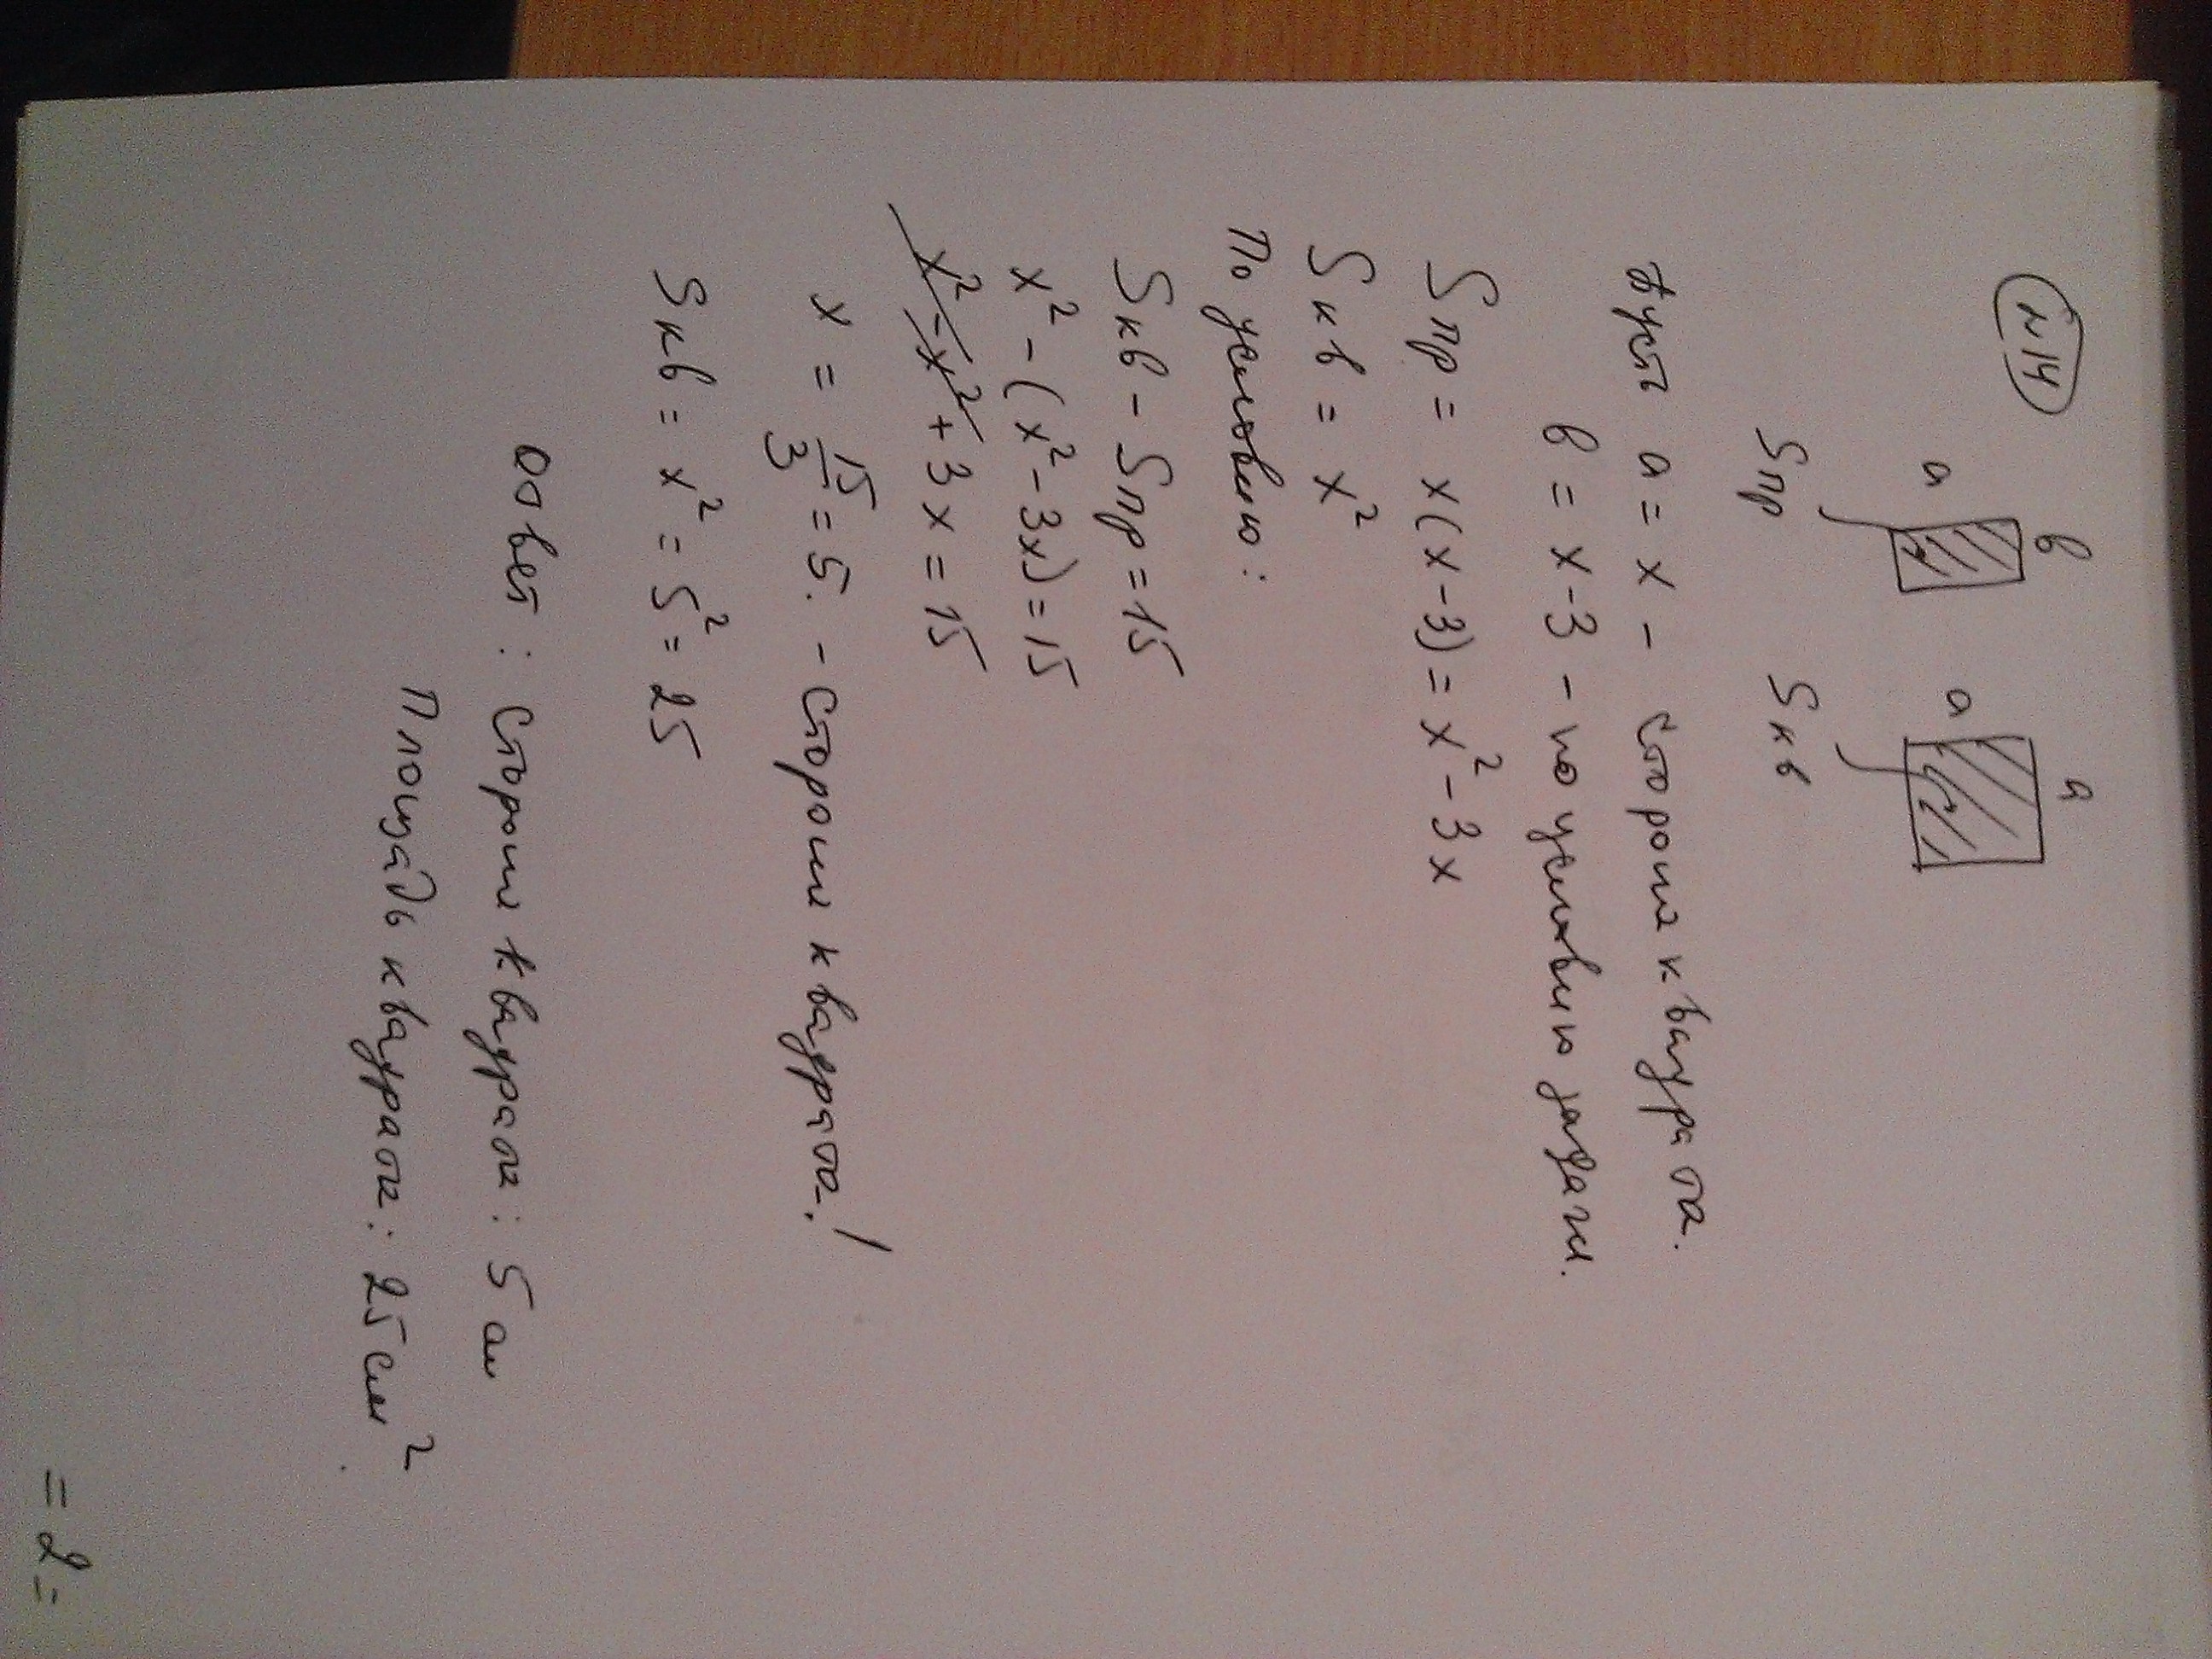 N14
в
a
a
a
Sпр
Sкв
Пусть a = x - сторона квадрата.
в = x - 3 - по условию задачи.
Sпр = x(x-3) = x² - 3x
Sкв = x²
По условию:
Sкв - Sпр = 15
x² - (x² - 3x) = 15
x² - x² + 3x = 15
x = 15/3 = 5. - сторона квадрата!
Sкв = x² = 5² = 25
Ответ: Сторона квадрата: 5 см
Площадь квадрата: 25 см².
= 2 =